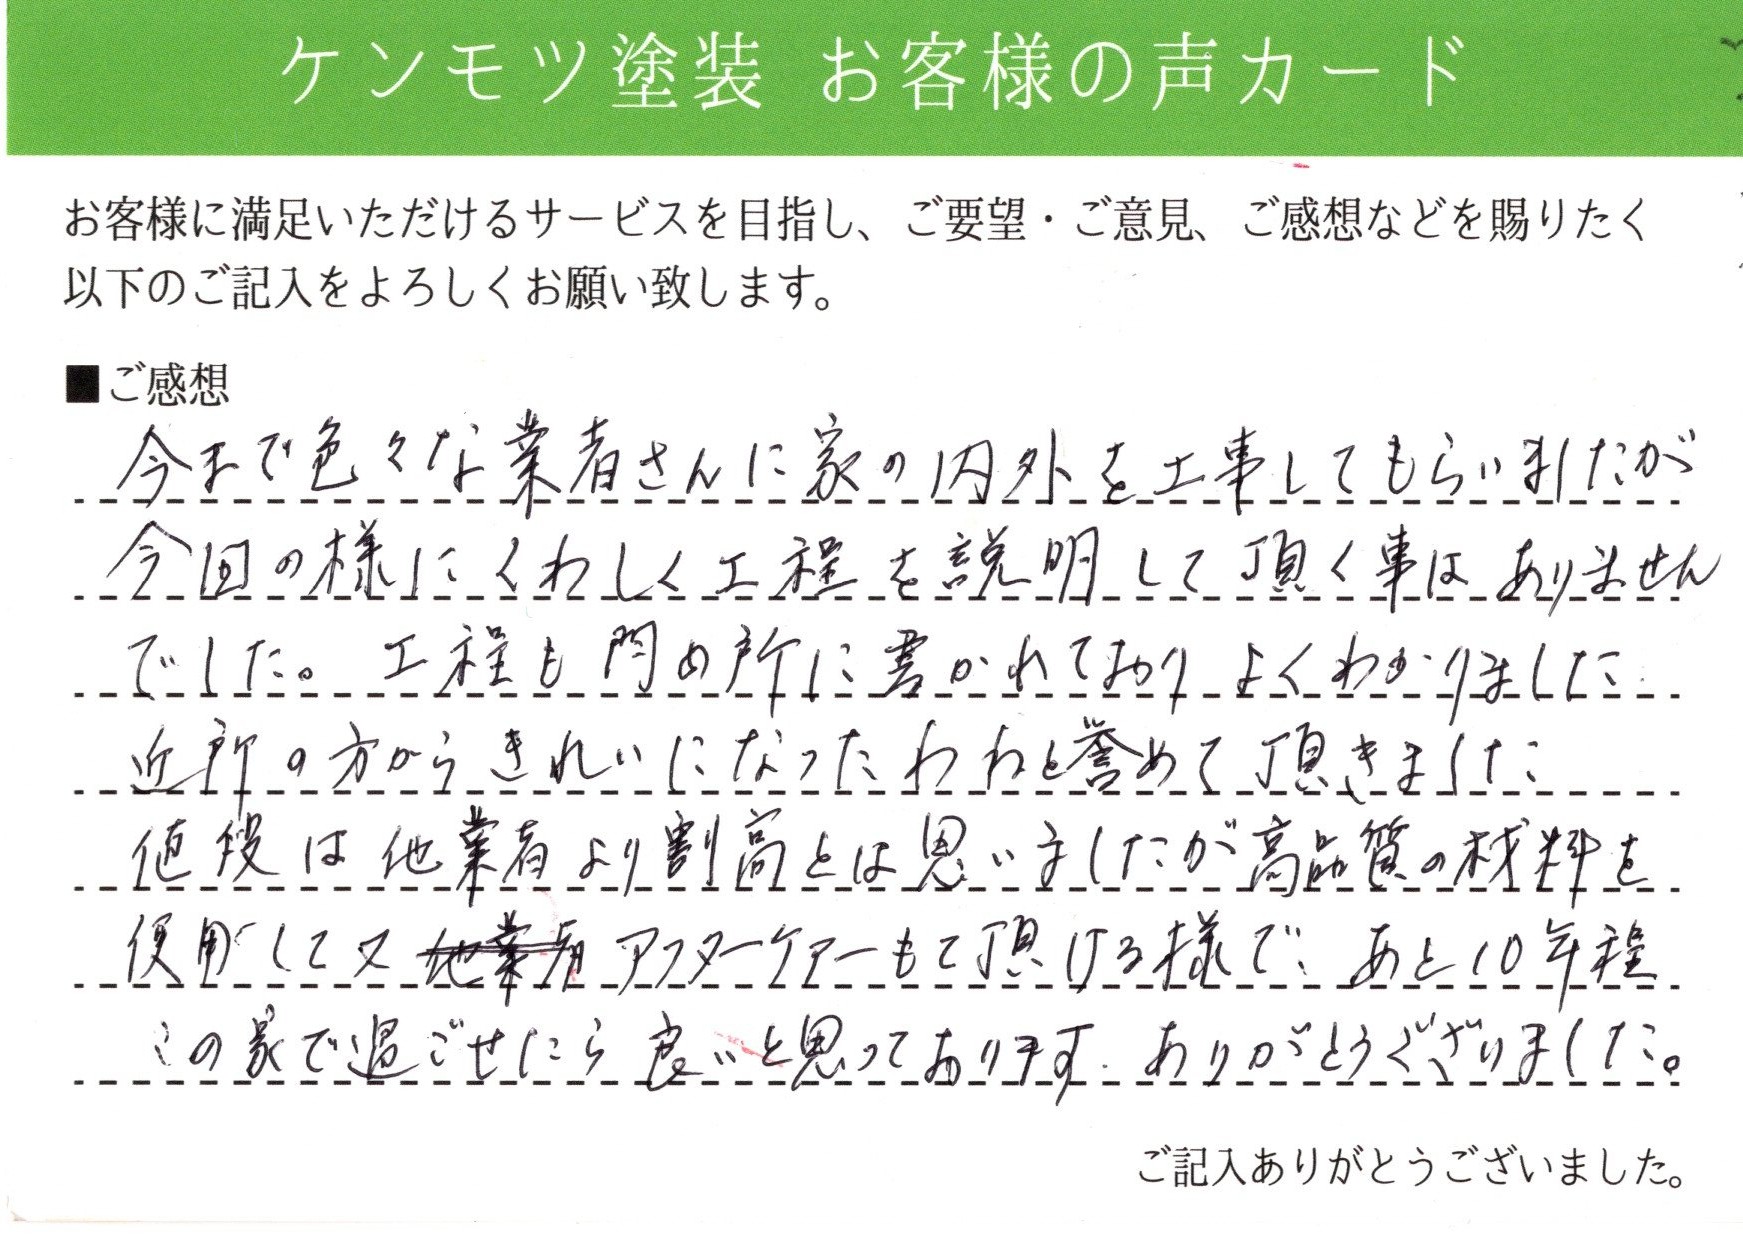 ケンモツ塗装 お客様の声カード
お客様に満足いただけるサービスを目指し、ご要望・ご意見、ご感想などを賜りたく
以下のご記入をよろしくお願い致します。
■ご感想
今まで色々な業者さんに家の内外を工事してもらいましたが
今回の様にくわしく工程を説明して頂く事はありません
でした。工程も閂め所に書かれており よくわかりました
近所の方からきれいになったわねと誉めて頂きました
値段は他業者より割高とは思いましたが高品質の材料を
使用して又 他業者 アフターケアーもて頂ける様で、あと10年程
この家で過ごせたら良いと思っております. ありがとうございました。
ご記入ありがとうございました。